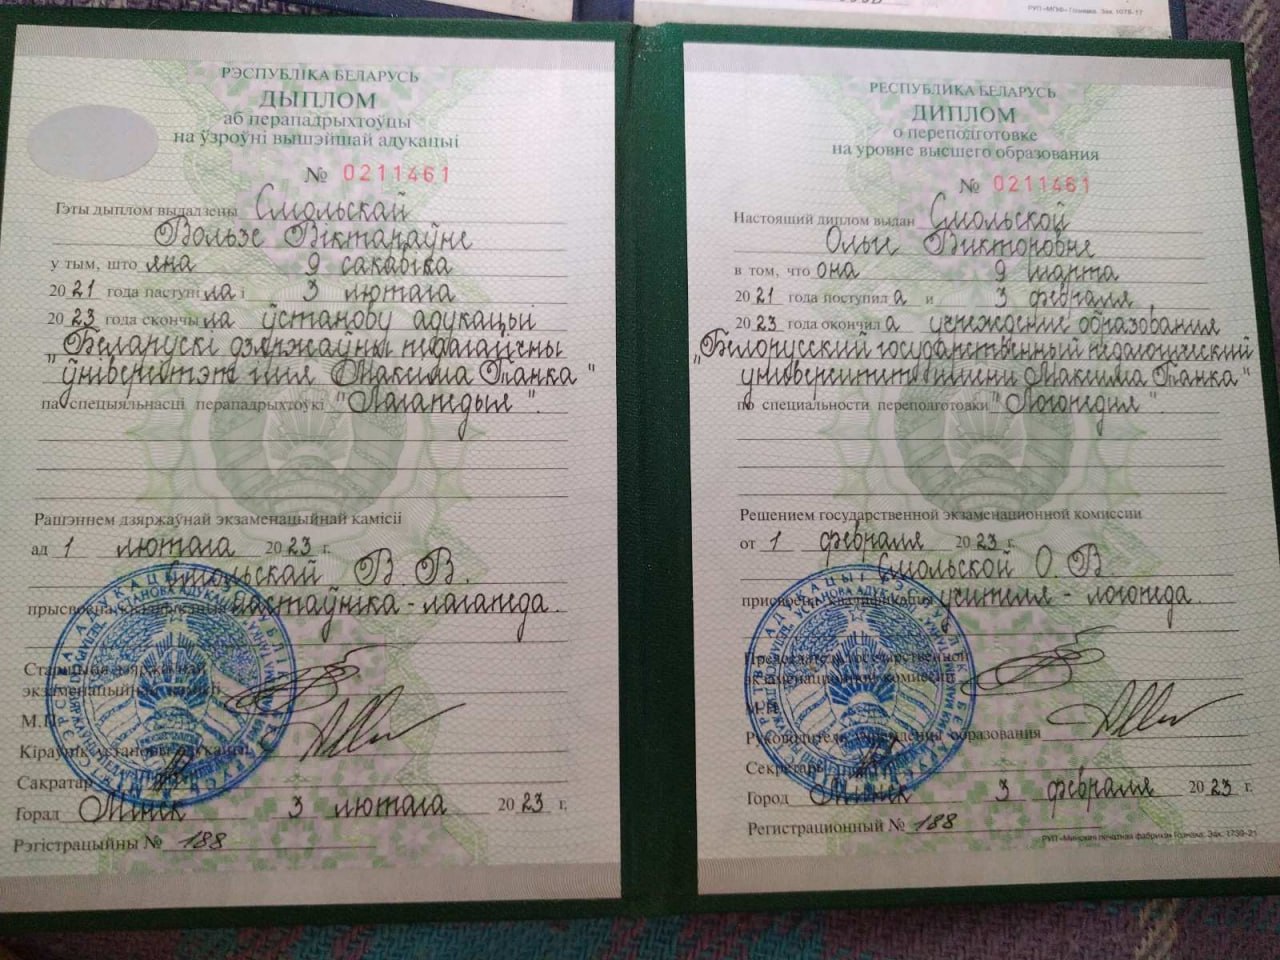 РУП «МПФ» Гознака. Зак. 1078-17
РЭСПУБЛІКА БЕЛАРУСЬ
ДЫПЛОМ
аб перападрыхтоўцы
на ўзроўні вышэйшай адукацыі
№ 0211461
Гэты дыплом выдадзены Смольскай
Вользе Віктараўне
у тым, што яна 9 сакавіка
20 21 года паступі ла і 3 лютага
20 23 года скончы ла ўстанову адукацыі
"Беларускі дзяржаўны педагагічны
ўніверсітэт імя Максіма Танка"
па спецыяльнасці перападрыхтоўкі "Лагапедыя".
Рашэннем дзяржаўнай экзаменацыйнай камісіі
ад 1 лютага 20 23 г.
Смольскай В. В.
прысвоена кваліфікацыя настаўніка-лагапеда.
Старшыня дзяржаўнай
экзаменацыйнай камісіі
М.П.
Кіраўнік установы адукацыі
Сакратар
Горад Мінск 3 лютага 20 23 г.
Рэгістрацыйны № 188
РЕСПУБЛИКА БЕЛАРУСЬ
ДИПЛОМ
о переподготовке
на уровне высшего образования
№ 0211461
Настоящий диплом выдан Смольской
Ольге Викторовне
в том, что она 9 марта
20 21 года поступил а и 3 февраля
20 23 года окончил а учреждение образования
"Белорусский государственный педагогический
университет имени Максима Танка"
по специальности переподготовки "Логопедия".
Решением государственной экзаменационной комиссии
от 1 февраля 20 23 г.
Смольской О. В
присвоена квалификация учителя-логопеда.
Председатель государственной
экзаменационной комиссии
М.П.
Руководитель учреждения образования
Секретарь
Город Минск 3 февраля 20 23 г.
Регистрационный № 188
РУП «Минская печатная фабрика» Гознака. Зак. 1739-21